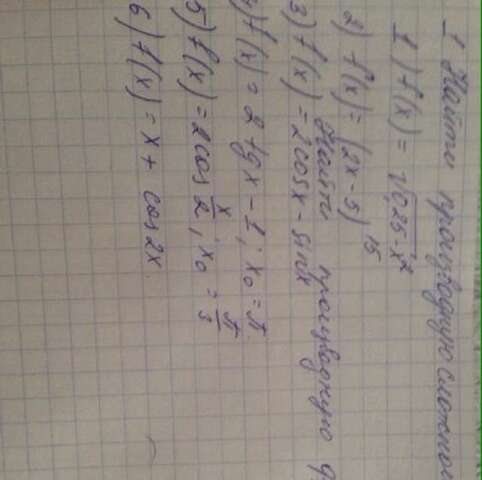 1 Найти производную сложной
1) f(x) = √0,25-x²
2) f(x) = (2x-5)¹⁵
Найти производную
3) f(x) = 2cosx - sinx
4) f(x) = 2tgx - 1; x₀ = π.
5) f(x) = 2cos x/2; x₀ = π/3
6) f(x) = x + cos2x.